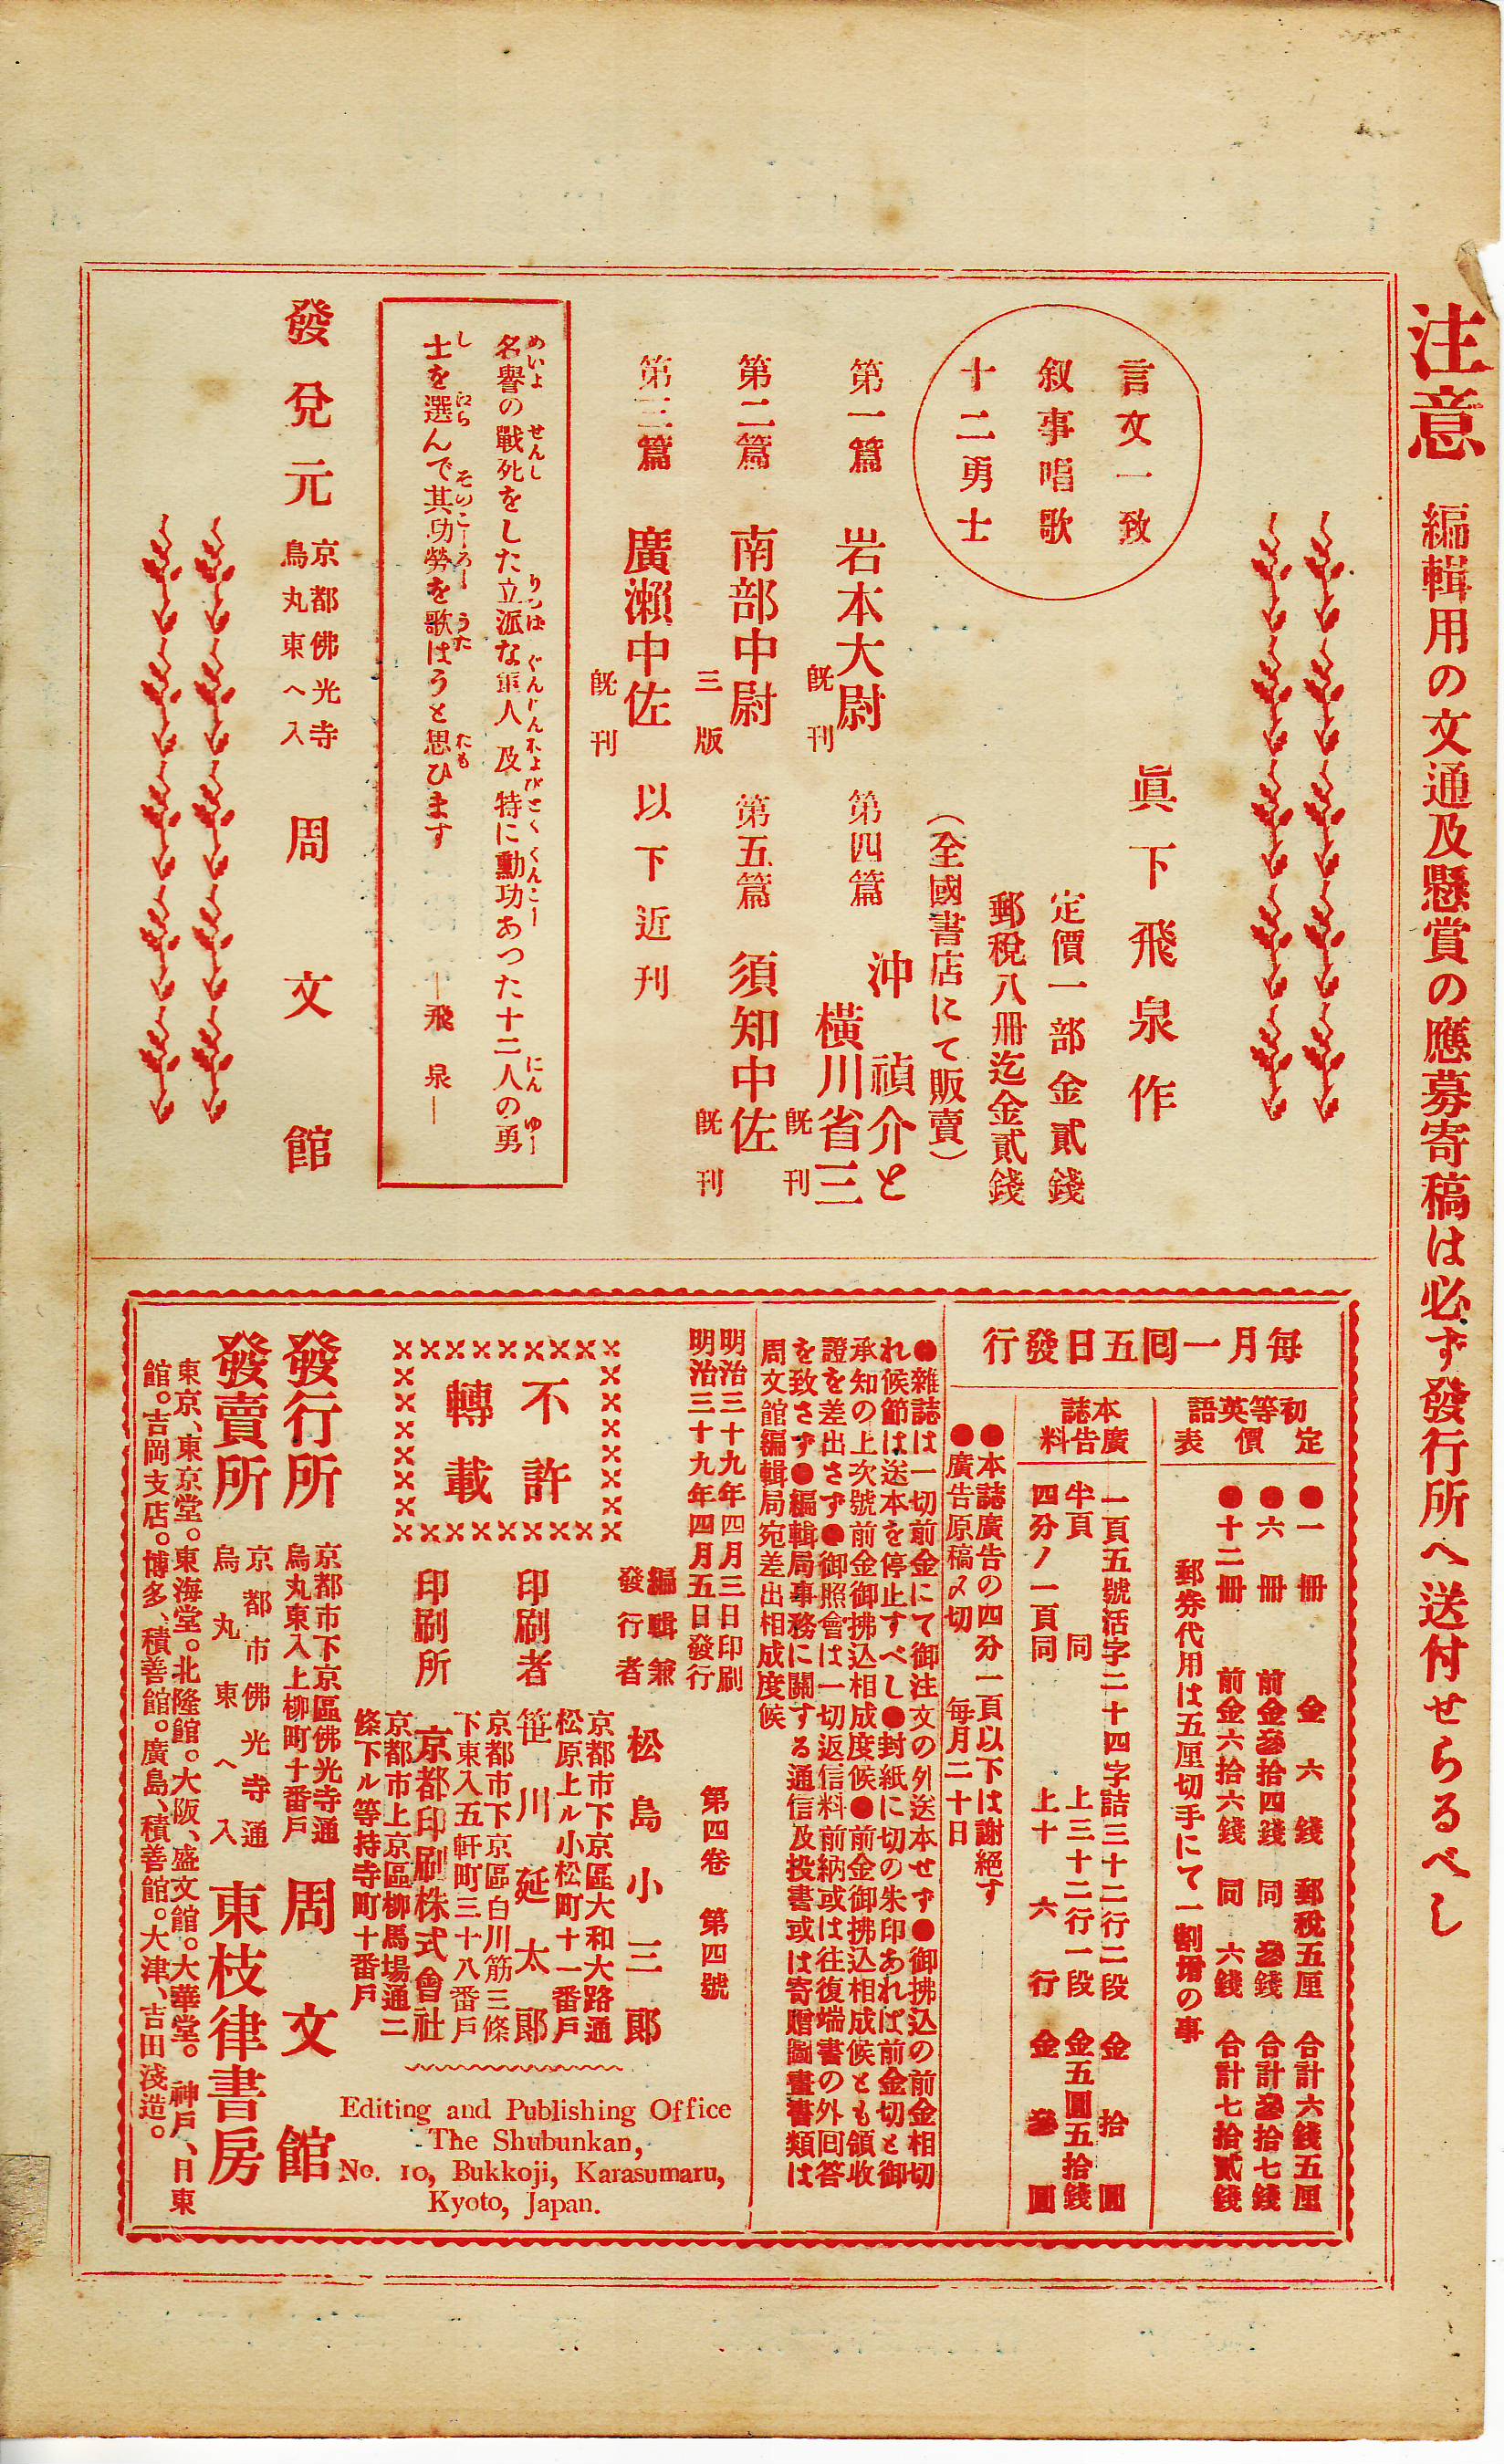 注意 編輯用の文通及懸賞の應募寄稿は必ず發行所へ送付せらるべし
言文一致
叙事唱歌
十二勇士
眞下飛泉作
定價一部金貳錢
郵稅八冊迄金貳錢
(全國書店にて販賣)
第一篇 岩本大尉 既刊
第四篇 沖禎介と
橫川省三 既刊
第二篇 南部中尉 三版
第五篇 須知中佐 既刊
第三篇 廣瀨中佐 既刊
以下近刊
名譽の戰死をした立派な軍人及特に勳功あつた十二人の勇
士を選んで其功勞を歌はうと思ひます ―飛泉―
發兌元 京都佛光寺
烏丸東へ入 周文館
行發日五回一月每
語英等初
表價定
●一冊 金六錢 郵稅五厘 合計六錢五厘
●六冊 前金參拾四錢 同參錢 合計參拾七錢
●十二冊 前金六拾六錢 同六錢 合計七拾貳錢
郵券代用は五厘切手にて一割增の事
誌本
料告廣
一頁五號活字二十四字詰三十二行二段 金拾圓
半頁 同 上三十二行一段 金五圓五拾錢
四分ノ一頁同 上十六行 金參圓
●本誌廣告の四分一頁以下は謝絕す
●廣告原稿〆切 每月二十日
●雜誌は一切前金にて御注文の外送本せず●御拂込の前金相切
れ候節は送本を停止すべし●封紙に切の朱印あれば前金切と御
承知の上次號前金御拂込相成度候●前金御拂込相成候とも領收
證を差出さず●御照會は一切返信料前納或は往復端書の外回答
を致さず●編輯局事務に關する通信及投書或は寄贈圖畫書類は
周文館編輯局宛差出相成度候
明治三十九年四月三日印刷
明治三十九年四月五日發行
第四卷 第四號
不許
轉載
編輯兼
發行者 松島小三郎
京都市下京區大和大路通
松原上ル小松町十一番戶
印刷者 笹川延太郎
京都市下京區白川筋三條
下東入五軒町三十八番戶
印刷所 京都印刷株式會社
京都市上京區柳馬場通二
條下ル等持寺町十番戶
Editing and Publishing Office
The Shubunkan,
No. 10, Bukkoji, Karasumaru,
Kyoto, Japan.
發行所 京都市下京區佛光寺通
烏丸東入上柳町十番戶 周文館
發賣所 京都市佛光寺通
烏丸東へ入 東枝律書房
東京、東京堂。東海堂。北隆館。大阪、盛文館。大華堂。神戶、日東
館。吉岡支店。博多、積善館。廣島、積善館。大津、吉田淺造。